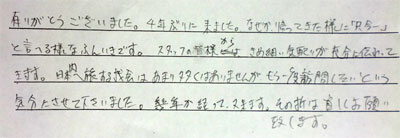 有りがとうございました。4年ぶりに来ました。なぜか帰ってきた様に「只今ー」
と言へる様なふんいきです。スタッフの皆様からはきめ細い気配りが充分に伝わって
きます。日本内へ旅する機会はあまり多くはありませんがもう一度訪問したいという
気分にさせて下さいました。幾年か経って又きます。その折は宜しくお願い
致します。